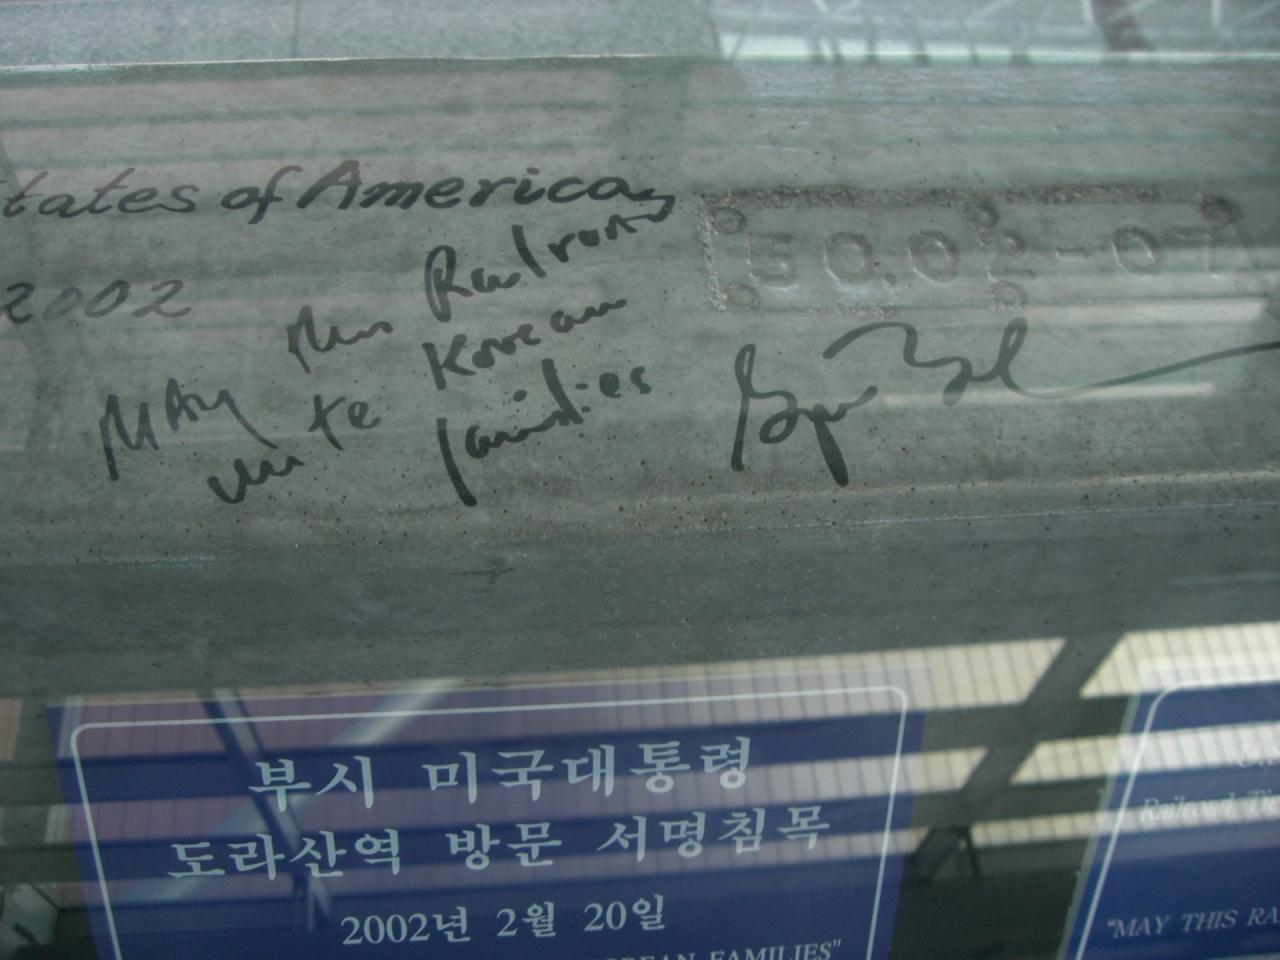 tates of America
2002
MAy this Railroad
unite Korean
families
50.02-07
부시 미국대통령
도라산역 방문 서명침목
2002년 2월 20일
OREAN FAMILIES"
Railroad Tie
"MAY THIS RA